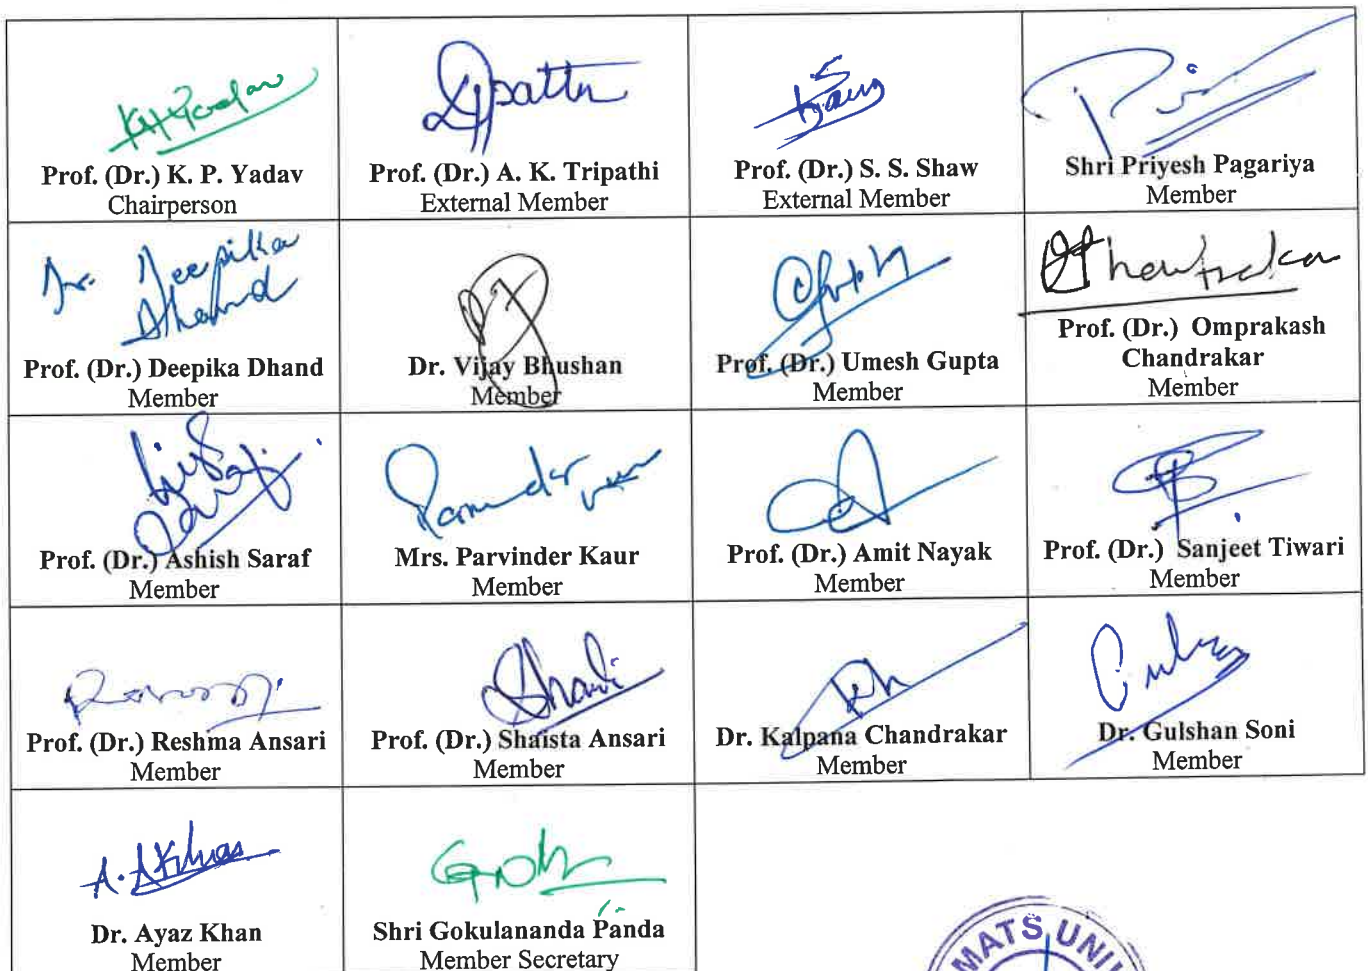 Prof. (Dr.) K. P. Yadav
Chairperson
Prof. (Dr.) A. K. Tripathi
External Member
Prof. (Dr.) S. S. Shaw
External Member
Shri Priyesh Pagariya
Member
Dr. Deepika
Dhand
Prof. (Dr.) Deepika Dhand
Member
Dr. Vijay Bhushan
Member
Prof. (Dr.) Umesh Gupta
Member
Prof. (Dr.) Omprakash
Chandrakar
Member
Prof. (Dr.) Ashish Saraf
Member
Mrs. Parvinder Kaur
Member
Prof. (Dr.) Amit Nayak
Member
Prof. (Dr.) Sanjeet Tiwari
Member
Prof. (Dr.) Reshma Ansari
Member
Prof. (Dr.) Shaista Ansari
Member
Dr. Kalpana Chandrakar
Member
Dr. Gulshan Soni
Member
Dr. Ayaz Khan
Member
Shri Gokulananda Panda
Member Secretary
MATS UNI